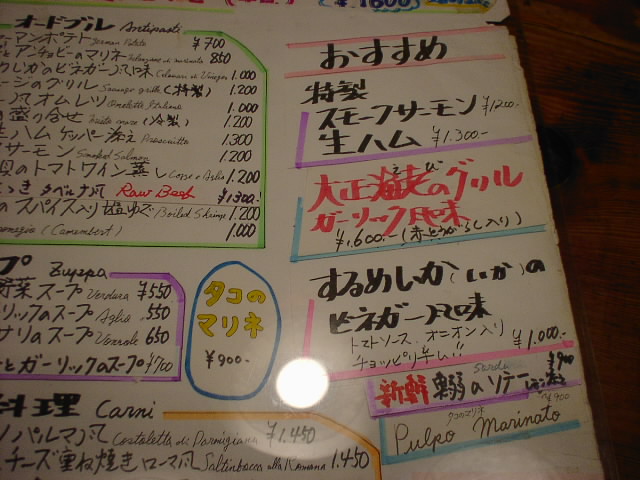 (¥1600)
オードブル Antipasti
ーマンポテト German Potato ¥700
とアンチョビーのマリネ 850
いかのビネガー風味 1.000
ージのグリル (特製) 1.200
風オムレツ Omelette Italiano 1.000
の盛り合せ (冷製) 1.200
生ハム ケッパー添え Prosciutto 1.300
サーモン Smoked Salmon 1.200
貝のトマトワイン蒸し 1.200
たっき タベルナ風 Raw Beef ¥1.300-
のスパイス入り塩ゆで Boiled Shrimp 1.200
(Camembert) 1.000
プ Zuppa
野菜スープ Verdura ¥550
リックのスープ Aglio 550
サリのスープ Vongole 650
とガーリックのスープ ¥700
タコの
マリネ
¥900-
料理 Carni
ノパルマ風 Costoletta di Parmigiana ¥1.450
チーズ重ね焼きローマ風 Saltinbocca alla Romana 1.450
おすすめ
特製
スモークサーモン ¥1200-
生ハム ¥1.300-
大正海老のグリル
えび
ガーリック風味
¥1.600- (赤とうがらし入り)
するめいか(いか)の
ビネガー風味
トマトソース、オニオン入り
チョッピリ辛い!! ¥1.000-
新鮮 鰯のソテー ¥900
タコのマリネ ¥900
Pulpo Marinato